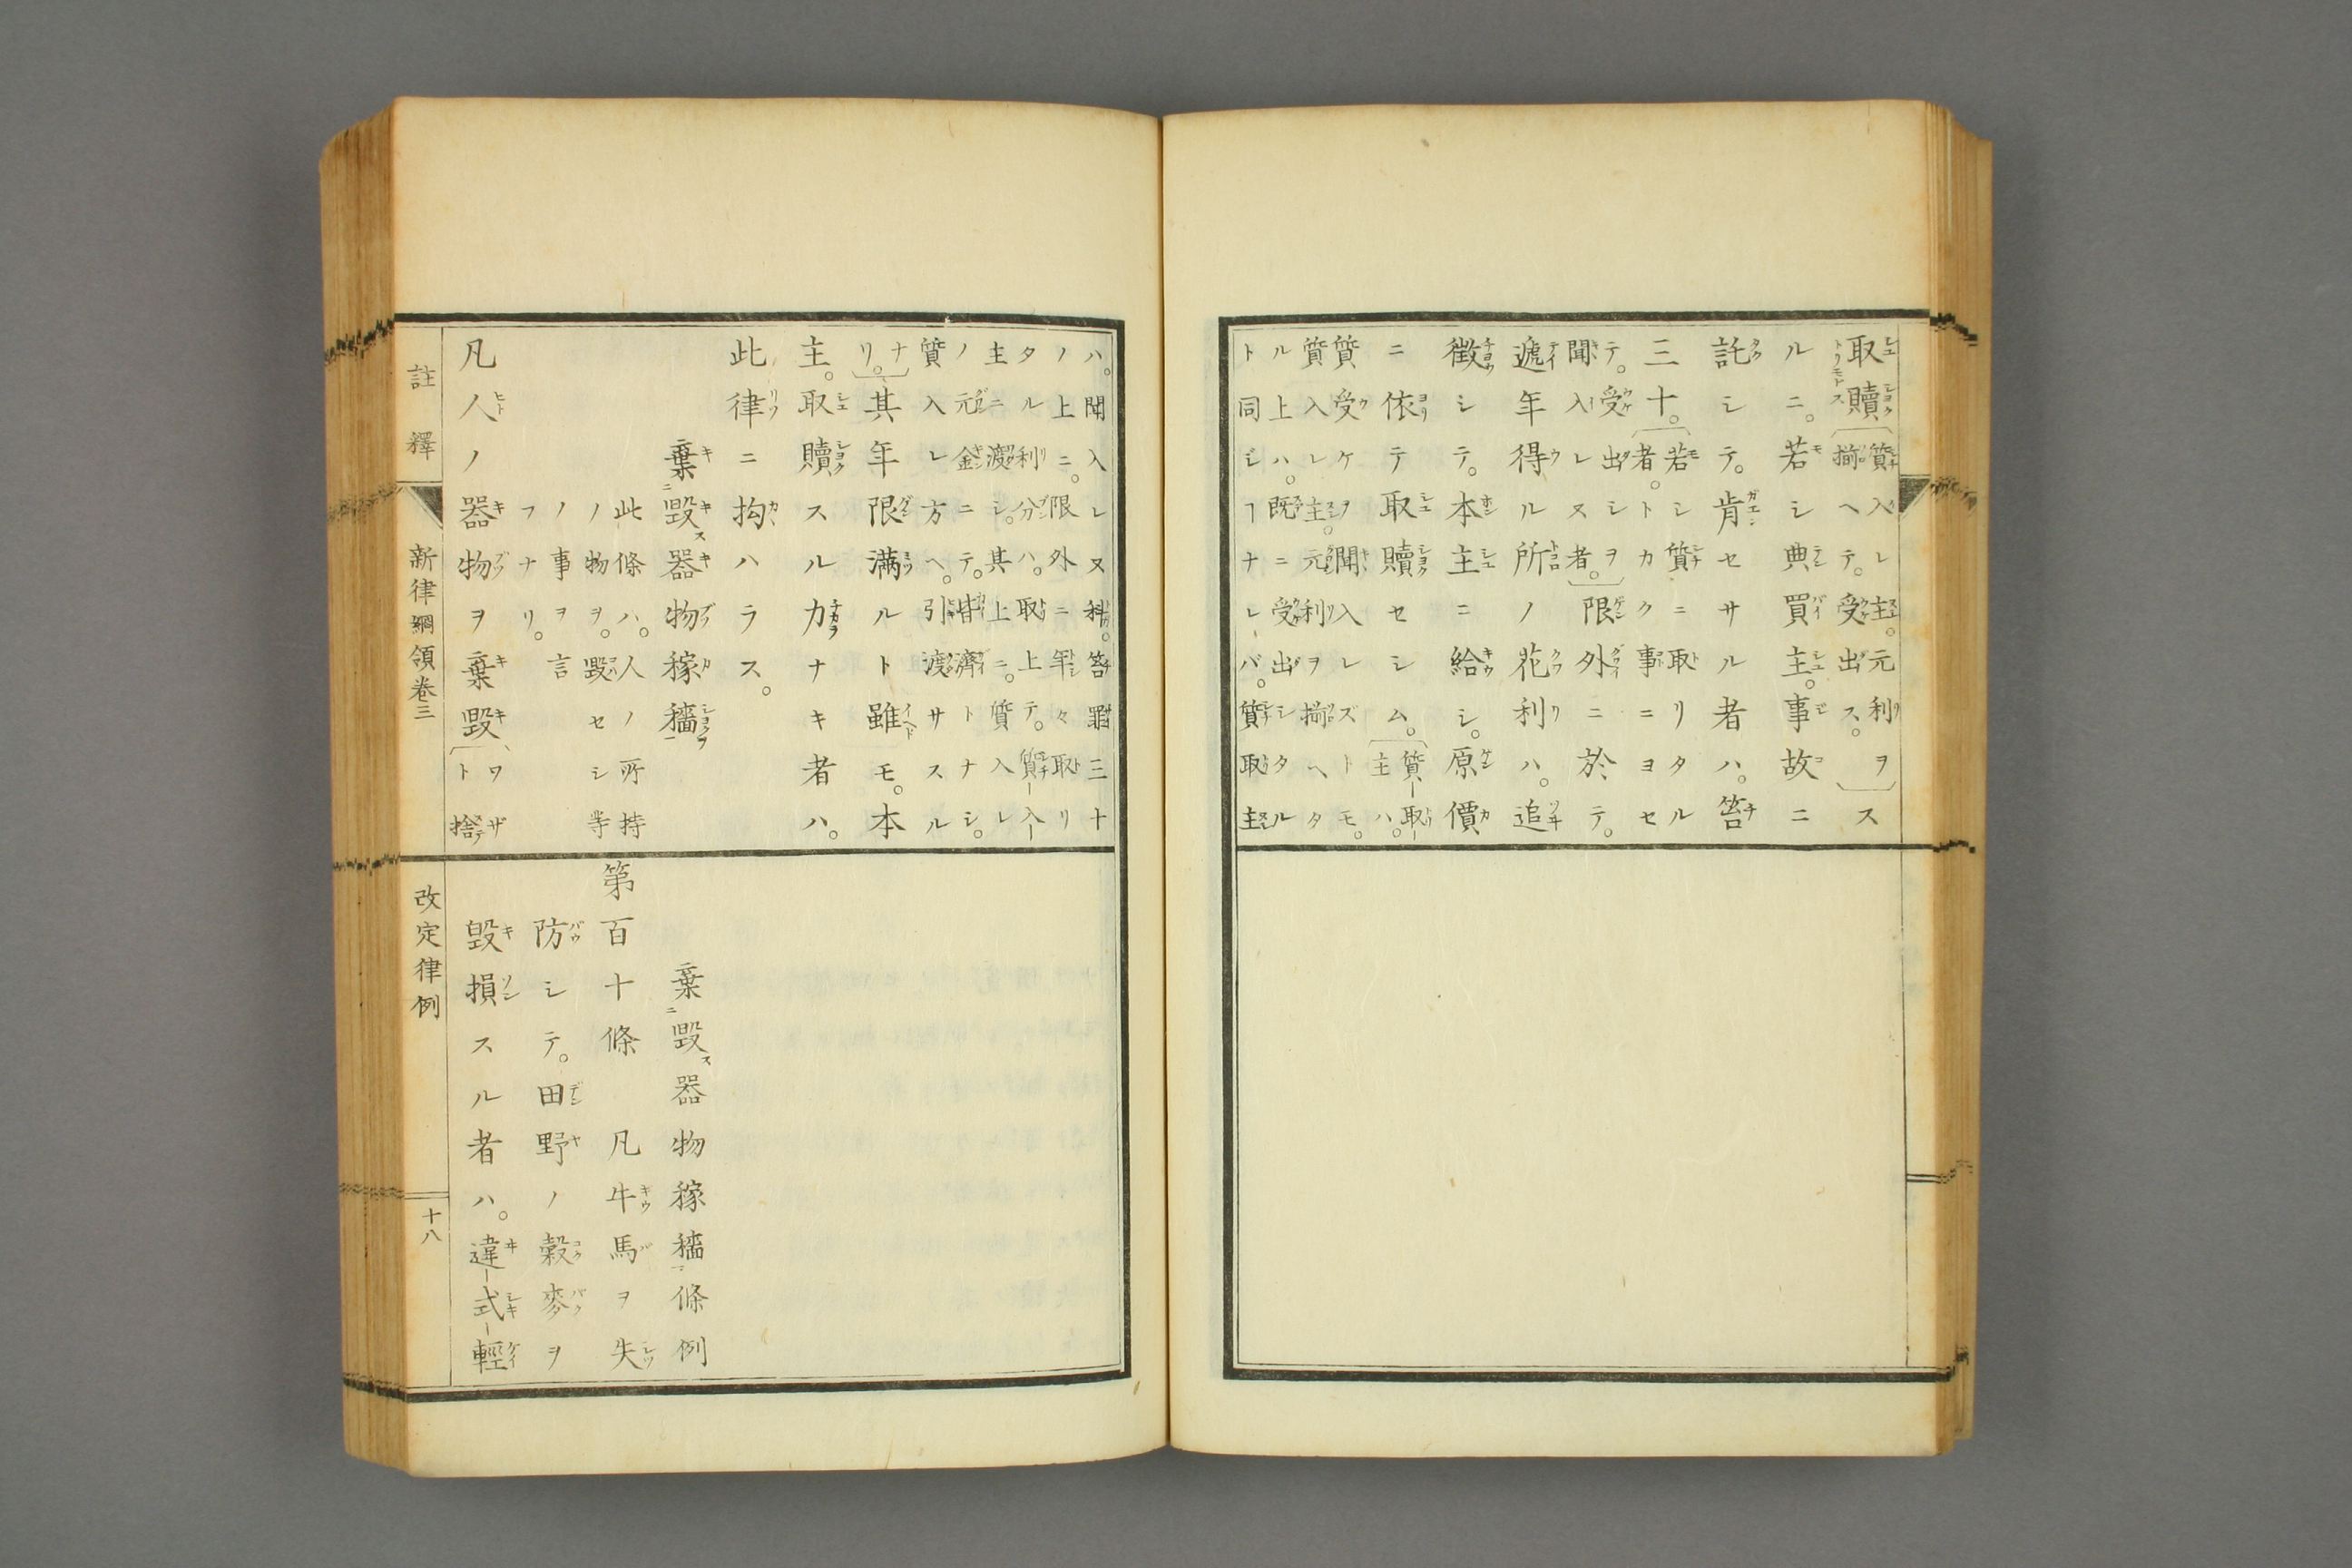 取贖〔質入レ主。元利ヲ
揃ヘテ。受出ス。〕ス
ルニ。若シ典買主。事故ニ
託シテ。肯セサル者ハ。笞
三十。〔若シ質ニ取リタル
者。トカク事ニヨセ
テ。受出シヲ
聞入レス者。〕限外ニ於テ。
遞年得ル所ノ花利ハ。追
徴シテ。本主ニ給シ。原價
ニ依テ取贖セシム。〔質取
主ハ。
質受ケヲ聞入レズトモ。
質入レ主。元利ヲ揃ヘタ
ル上ハ。既ニ受出シタル
ト同シヿナレバ。質取主
ハ。聞入レヌ科。笞罪三十
ノ上ニ。限外ニ年々取リ
タル利分ハ。取上テ。質入
主ニ渡シ。其上ニ。質入レ
ノ元金ニテ。皆濟トナシ。
質入レ方ヘ。引渡サスル
ナリ。〕其年限満ルト雖モ。本
主。取贖スル力ナキ者ハ。
此律ニ拘ハラス。
棄毀器物稼穡
此條ハ。人ノ所持
ノ物ヲ。毀セシ等
ノ事ヲ言
フナリ。
凡人ノ器物ヲ棄毀〔ワザ
ト捨
棄毀器物稼穡條例
第百十條 凡牛馬ヲ失
防シテ。田野ノ穀麥ヲ
毀損スル者ハ。違式輕
註釋 新律綱領卷三 改定律例 十八